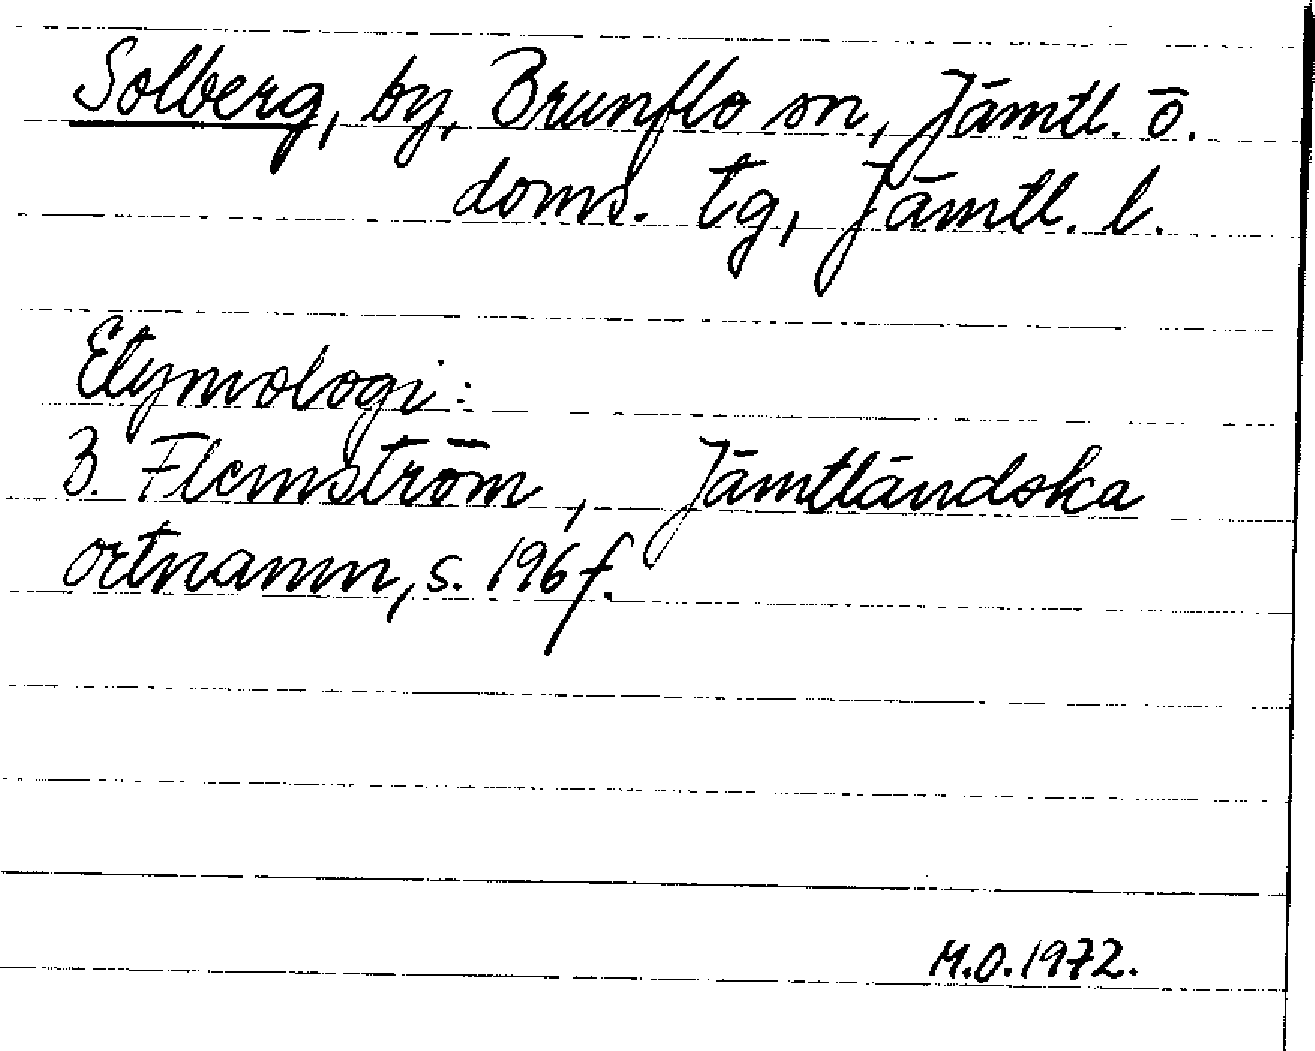 Solberg, by, Brunflo sn, Jämtl. ö.
doms. tg, Jämtl. l.
Etymologi:
B. Flemström, Jämtländska
ortnamn, s. 196 f.
M.O. 1972.